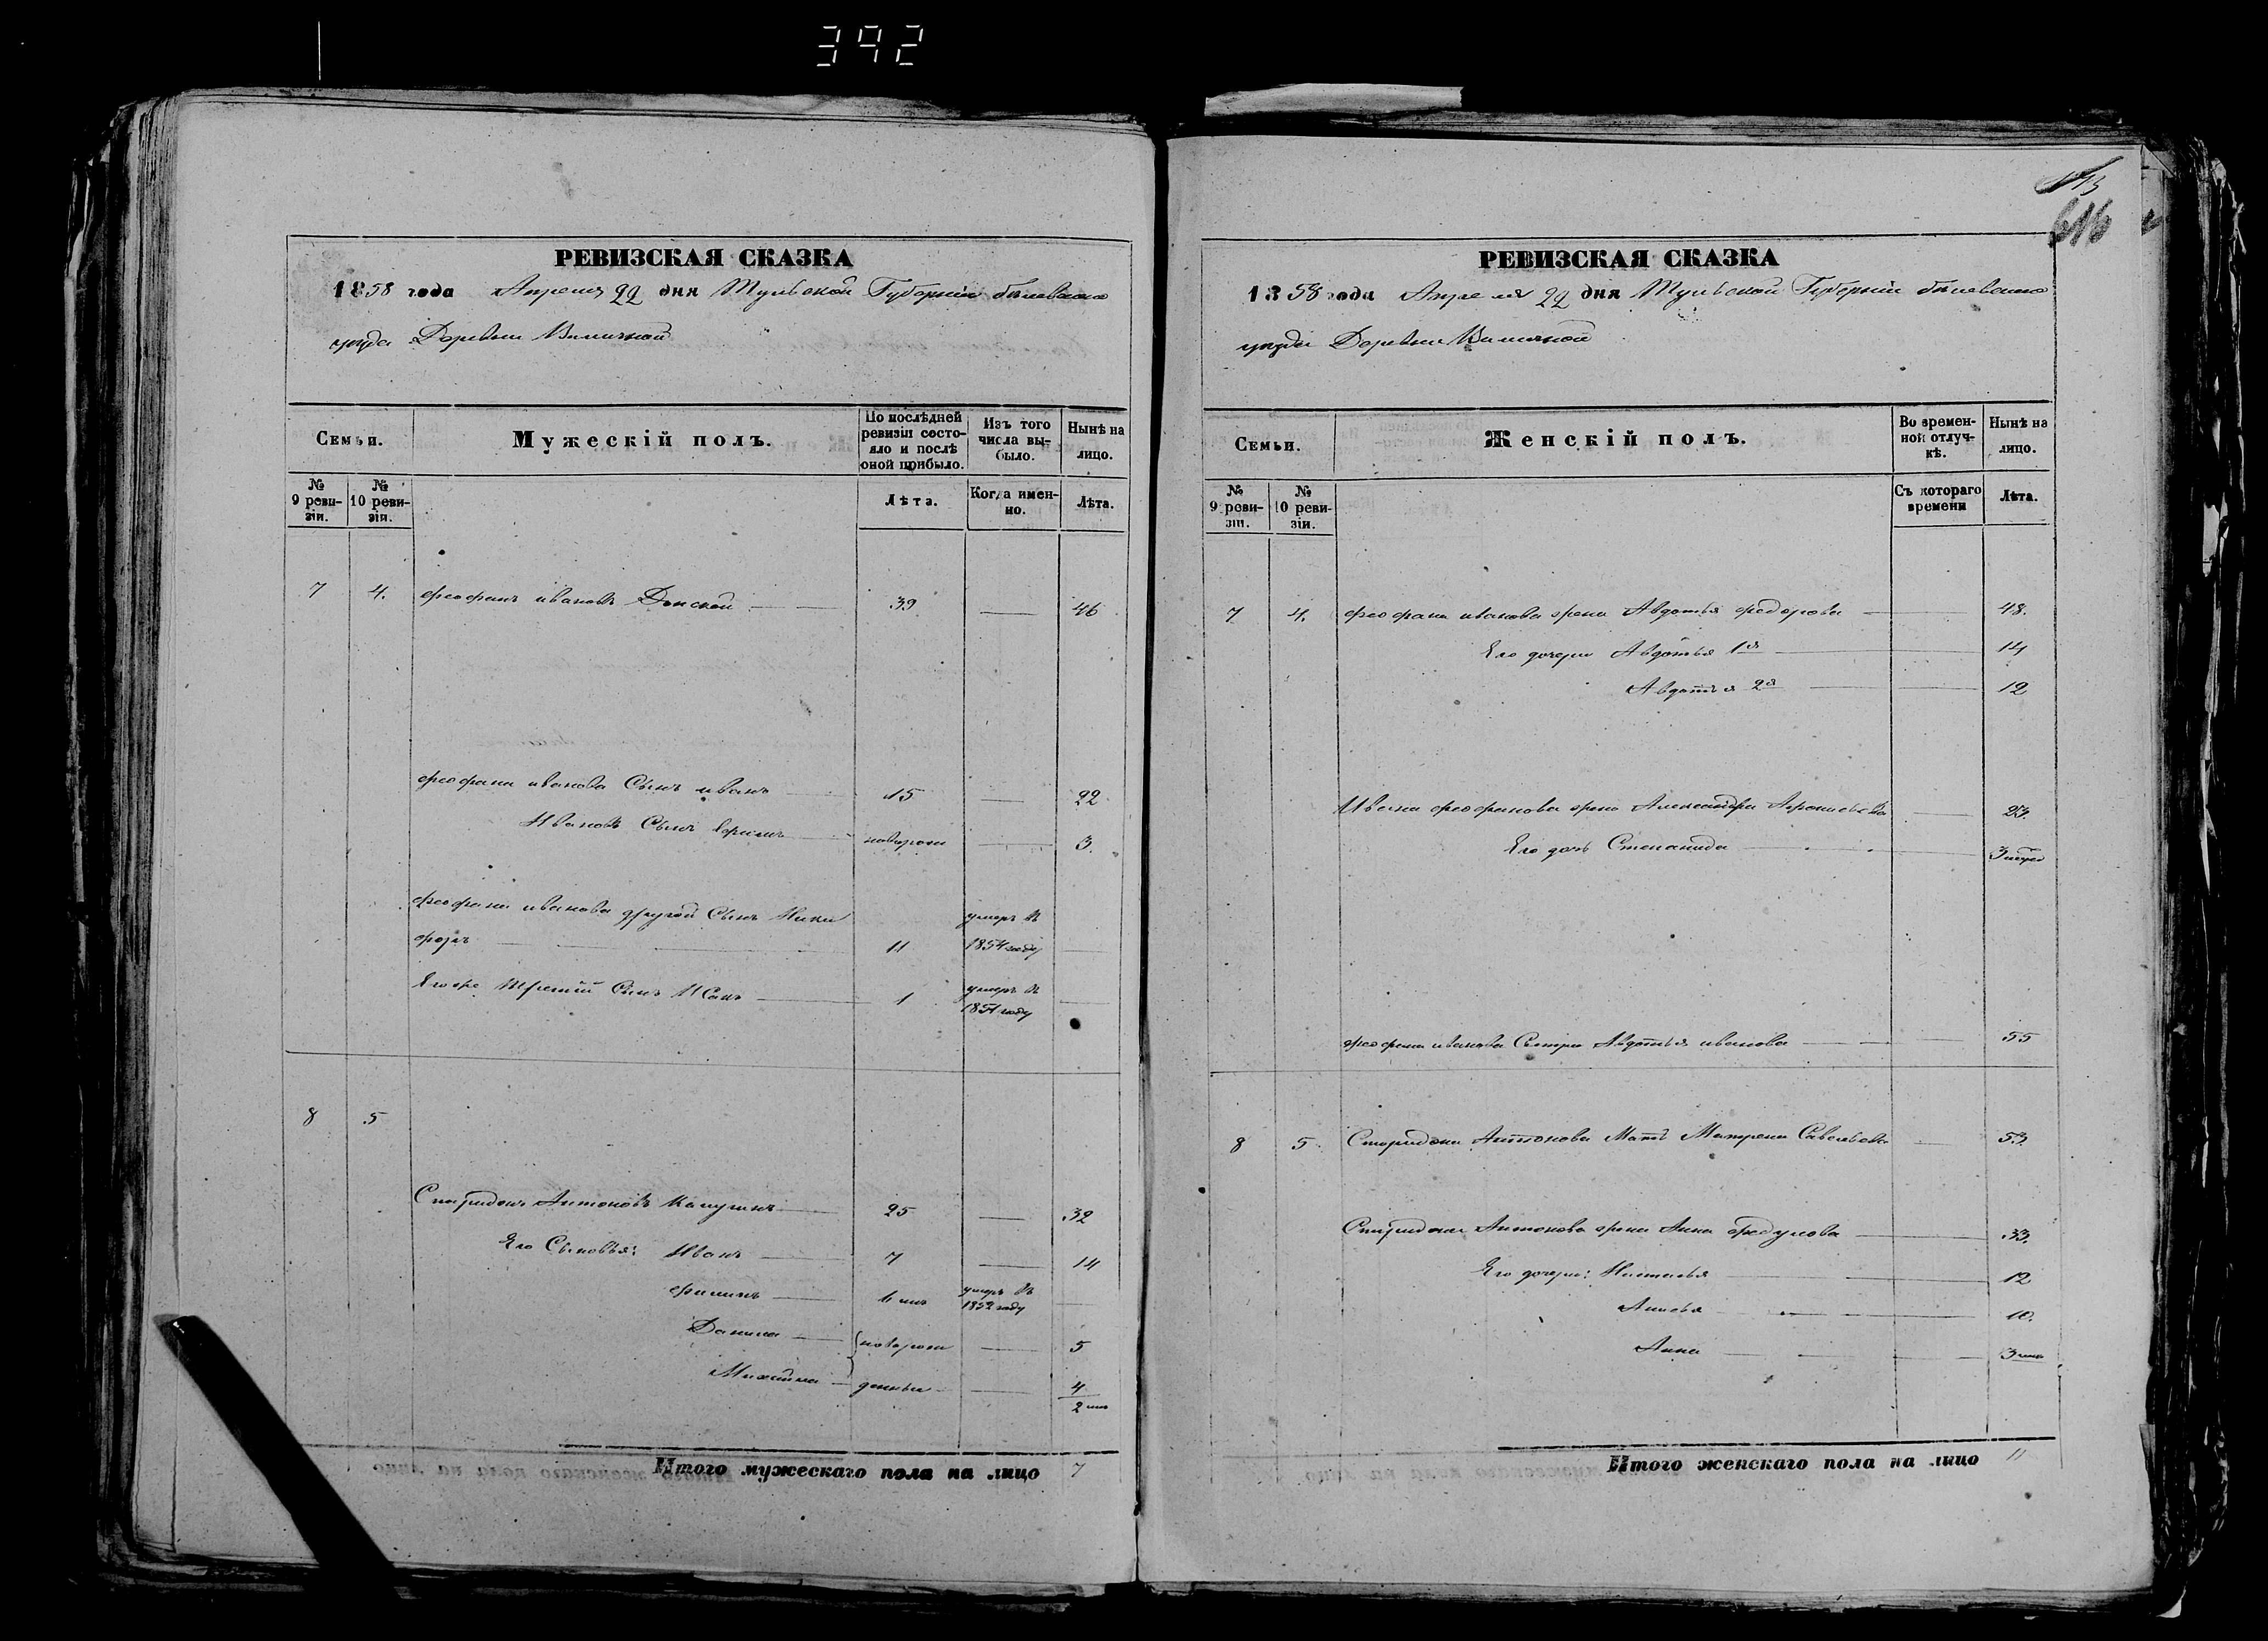 392
РЕВИЗСКАЯ СКАЗКА
1858 года Апреля 22 дня Тульской Губернии белевскаго
уезда Деревни
Семьи.
Мужескій полъ.
По послѣдней ревизіи состояло и послѣ оной прибыло.
Изъ того числа выбыло.
Нынѣ на лицо.
№ 9 ревизіи.
№ 10 ревизіи.
Лѣта.
Когда именно.
Лѣта.
7 4. феофанъ ивановъ Донской 39 46
феофана иванова Сынъ иванъ 15 22
Иванов Сынъ новорож 3.
феофана иванова другой Сынъ Ники умеръ въ
форъ 11 1854 году
Его же Третій Сынъ Исай 1 умеръ въ
1854 году
8 5
Спиридонъ Антоновъ 25 32
Его Сыновья: Иванъ 7 14
филипъ 6 мес умеръ въ
1852 году
Данила новорож 5
Михайла денные 4
2 мес
Итого мужескаго пола на лицо 7
616
РЕВИЗСКАЯ СКАЗКА
1858 года Апреля 22 дня Тульской Губернии белевскаго
уезда Деревни
Семьи.
Женскій полъ.
Во временной отлучкѣ.
Нынѣ на лицо.
№ 9 ревизіи.
№ 10 ревизіи.
Съ котораго времени
Лѣта.
7 4. феофана иванова жена Авдотья федорова 48.
Его дочери Авдотья 1я 14
Авдотья 2я 12
Ивана феофанова жена Александра 23.
Его дочь Степанида 3
феофана иванова Сестра Авдотья иванова 55
8 5 Спиридона Антонова Мать Матрена Савельева 53.
Спиридона Антонова жена Анна федулова 33.
Его дочери: Наталья 12
Анисья 10.
Анна 3
Итого женскаго пола на лицо 11